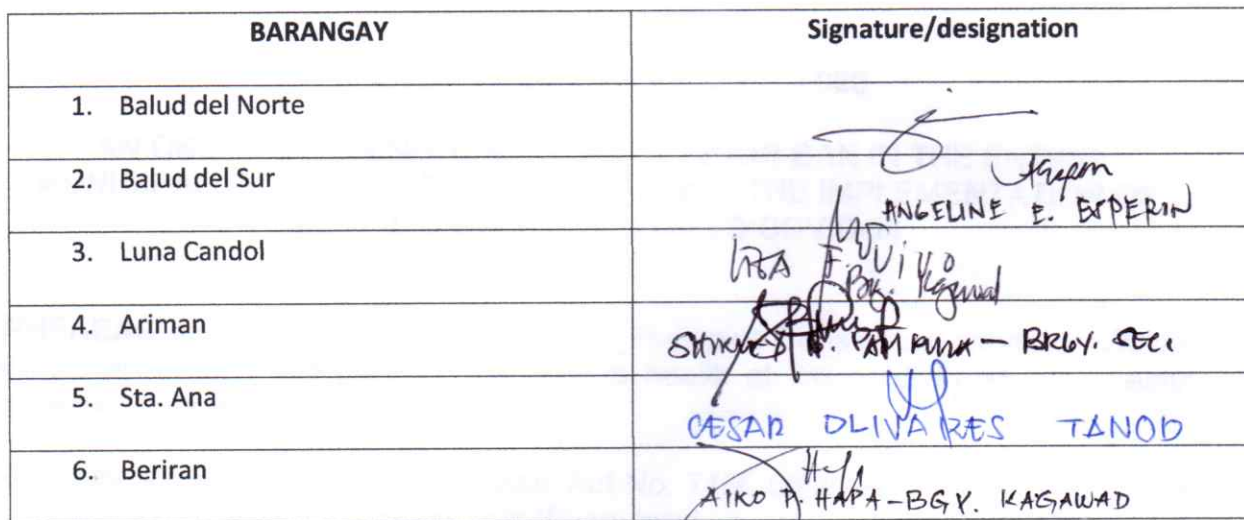 BARANGAY Signature/designation
1. Balud del Norte
2. Balud del Sur
ANGELINE E. ESPERIN
3. Luna Candol
Bgy. Kagawad
4. Ariman
BRGY. SEC.
5. Sta. Ana
CESAR OLIVARES TANOD
6. Beriran
AIKO P. HAPA-BGY. KAGAWAD